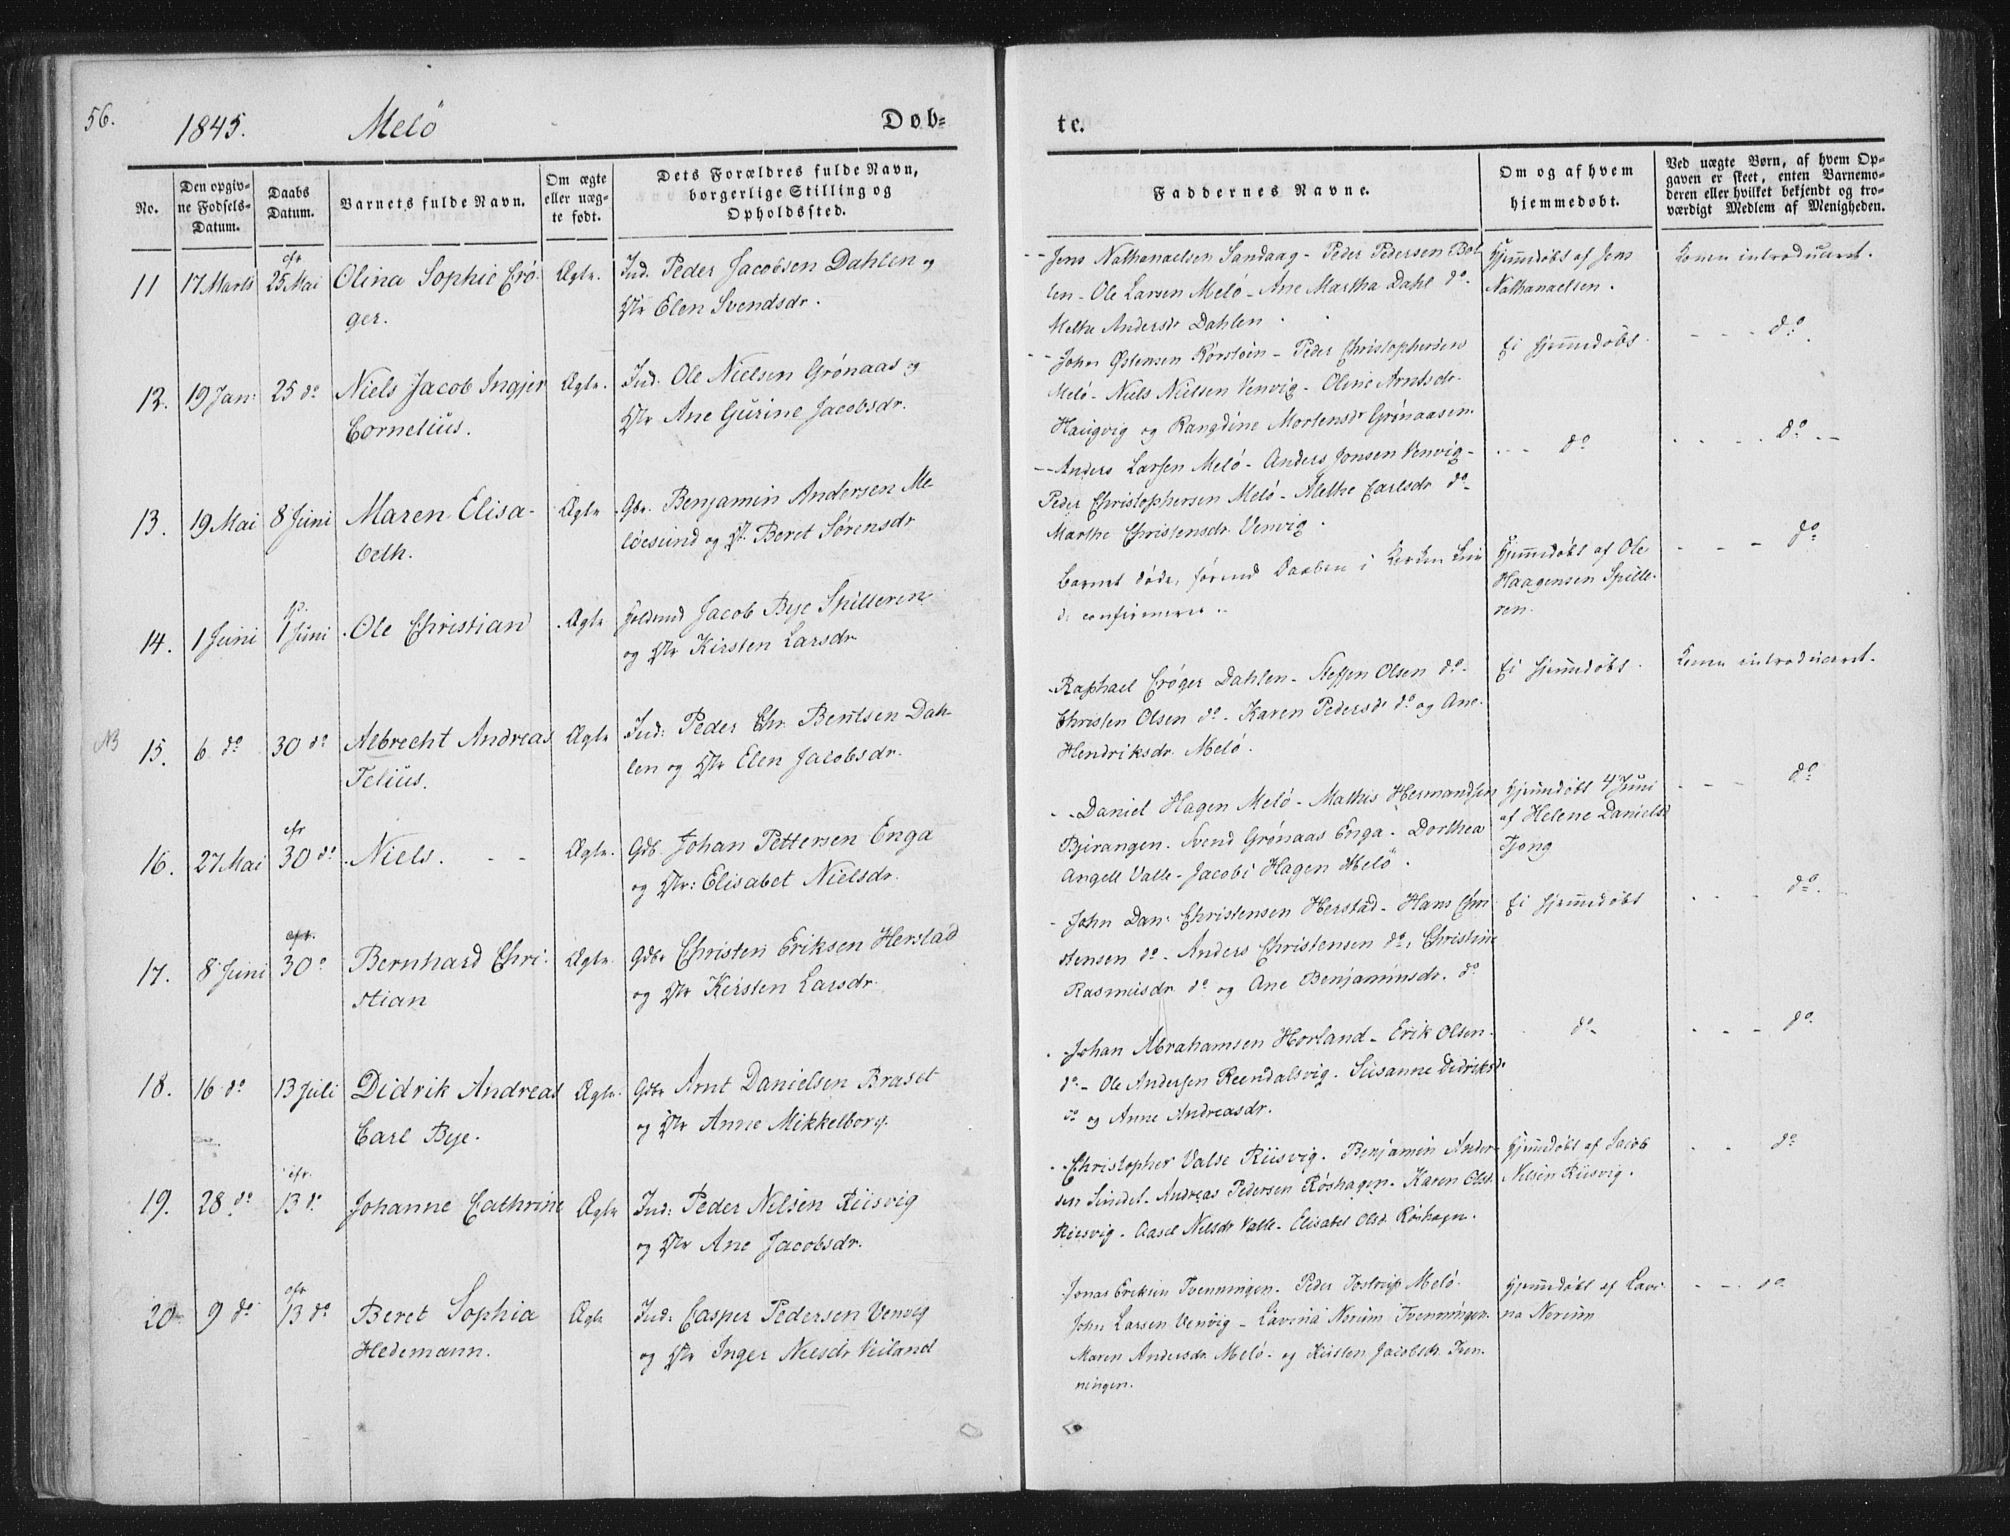 56.
1845. Melö
Døb=
No.
Den opgiv=
ne Fødsels=
Datum.
Daabs
Datum.
Barnets fulde Navn.
Om ægte
eller uæg=
te født.
Dets Forældres fulde Navn,
borgerlige Stilling og
Opholdssted.
11 17 Marts cfr 25 Mai Olina Sophie Crö- Ægte. Ind. Peder Jacobsen Dahlen og
ger. Elen Svendsdr.
12. 19 Jan: 25 do Niels Jacob Ingjer Ægte. Ind. Ole Nielsen Grönaas og
Cornelius. Ane Gurine Jacobsdr.
13. 19 Mai 8 Juni Maren Elisa- Ægte Gbr. Benjamin Andersen Me-
beth. löesund og Beret Sörensdr
14. 1 Juni 1 Juni Ole Christian Ægte Jacob Beje Spilleren
og Kirsten Larsdr
NB 15. 6 do 30 do Albrecht Andreas Ægte Ind: Peder Chr. Bentsen Dah-
Telius. len og Elen Jacobsdr.
16. 27 Mai cfr 30 do Niels. Ægte. Gdb. Johan Pettersen Enga
og Elisabet Nielsdr.
17. 8 Juni cfr. 30 do Bernhard Chri- Ægte. Gdbr Christen Eriksen Herstad
stian og Kirsten Larsdr.
18. 16 do 13 Juli Didrik Andreas Ægte. Gdbr Arnt Danielsen Braset
Carl Beje. og Anne Mikkelborg.
19. 28 do cfr. 13 do Johanne Cathrine Ægte Ind: Peder Nilsen Riisvig
og Ane Jacobsdr.
20 9 do cfr 13 do Beret Sophia Ægte Ind: Casper Pedersen Venvig
Hedemann. og Inger Neesdr Veiland
te.
Faddernes Navne.
Om og af hvem
hjemmedøbt.
Ved uægte Børn, af hvem Op=
gaven er skeet, enten Barnemo=
deren eller hvilket bekjendt og tro=
værdigt Medlem af Menigheden.
Jens Nathanaelsen Sandaag - Peder Pedersen Bol- Hjemmedöbt af Jens Konen introduceret.
len - Ole Larsen Melö - Ane Martha Dahl do. Nathanaelsen.
Methe Andersdr Dahlen.
John Östensen Korstöin - Peder Christophersen Ei hjemmedöbt. do.
Melö - Niels Nielsen Venvig - Oline Arntsdr.
Haugvig og Rangdine Mortensdr Grönaasen.
Anders Larsen Melö - Anders Jonsen Venvig - do do
Peder Christophersen Melö - Alethe Carlsdr do -
Marthe Christensdr Venvig.
Barnet döde, förend Daaben i Kirken Hjemmedöbt af Ole do
confirmeret. Haagensen Spille-
ren.
Raphael Cröger Dahlen - Steffen Olsen do - Ei hjemmedöbt. Konen introduceret.
Christen Olsen do - Karen Pedersdr do og Ane
Hendriksdr. Melö.
Daniel Hagen Melö - Mathis Hermandsen Hjemmedöbt 4 Juni do
Bjerangen. Svend Grönaas Enga - Dorthea af Helene Danielsd
Angell Valle - Jacobi Hagen Melö. Tjong
John Dan: Christensen Herstad - Hans Chri- Ei hjemmedöbt do.
stensen do - Anders Christensen do, Christine
Rasmusdr do og Ane Benjaminsdr. do
Johan Abrahamsen Horland - Erik Olsen do do.
do - Ole Andersen Reendalsvig - Susanne Didriksdr
do og Anne Andreasdr.
Christopher Valse Riisvig - Benjamin Ander- Hjemmedöbt af Jacob do
sen Sundet - Andreas Pedersen Röshagen - Karen Olsd. Nilsen Riisvig.
Riisvig - Aasel Nilsdr Valle - Elisabet Olsd. Röshagen.
Jonas Eriksen Tvenningen - Peder Tostrup Melö. Hjemmedöbt af Lavi- do
John Larsen Venvig - Lavina Norum Tvenningen. na Norum
Maren Andersdr. Melö - og Kirsten Jacobsdr. Tven-
ningen.